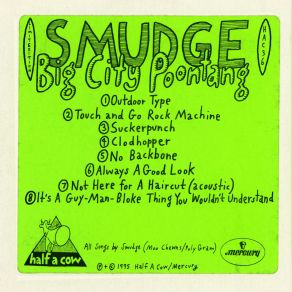 SMUDGE
Big City Poontang
① Outdoor Type
② Touch and Go Rock Machine
③ Suckerpunch
④ Clodhopper
⑤ No Backbone
⑥ Always A Good Look
⑦ Not Here for A Haircut (acoustic)
⑧ It's A Guy-Man-Bloke Thing You Wouldn't Understand
half a cow
All Songs by Smudge (Moo Chewns/Polygram)
℗ + © 1995 Half A Cow/Mercury
mercury
HAC36